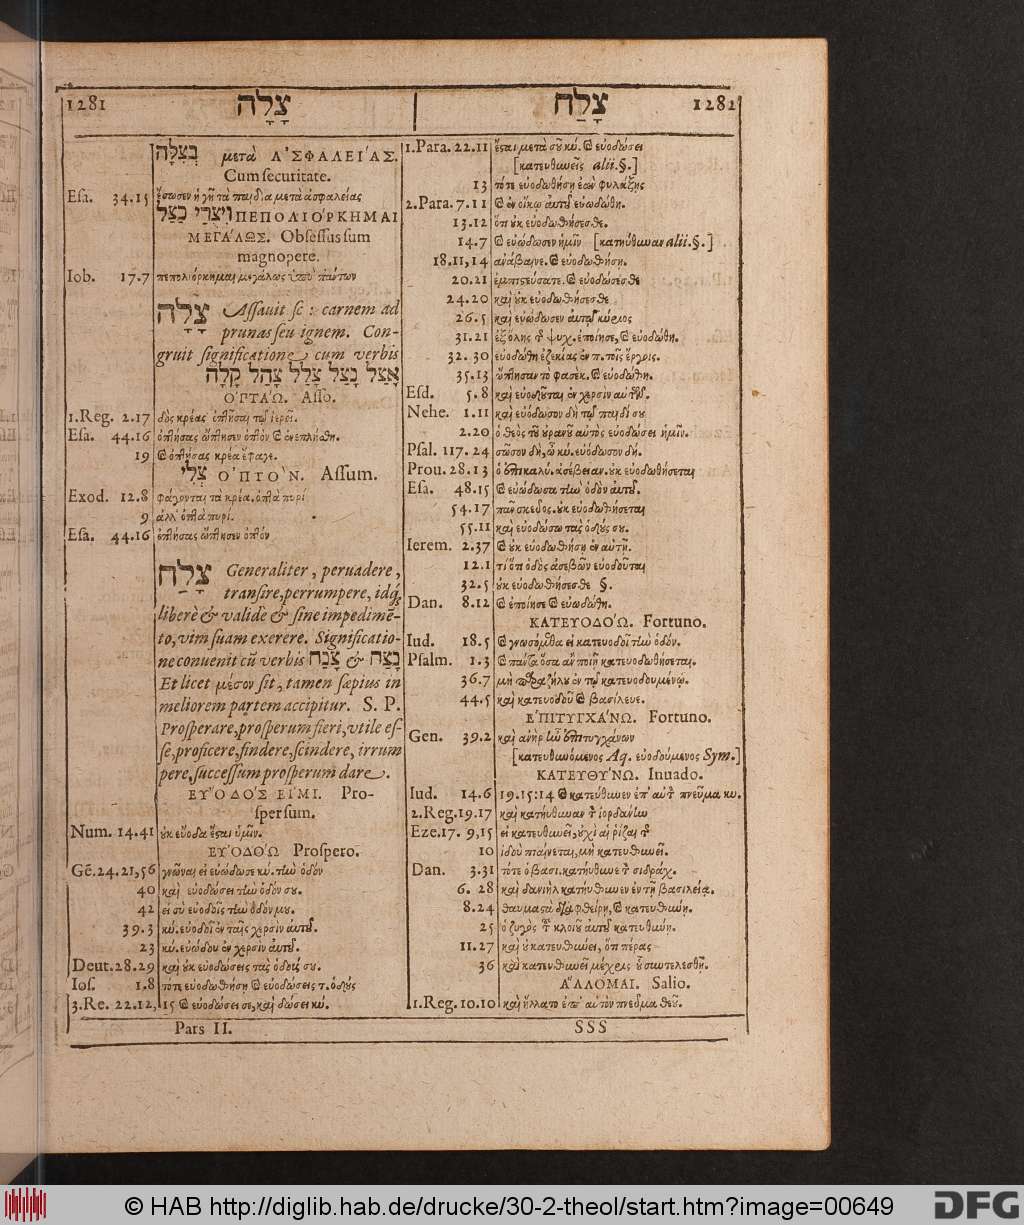 1281 צָלָה
בְּצִלָּה μετὰ ἈΣΦΑΛΕΊΑΣ.
Cum securitate.
Esa. 34.15 ἔσωσεν ἡ γῆ τὰ παιδία μετὰ ἀσφαλείας
ΠΕΠΟΛΙΌΡΚΗΜΑΙ
ΜΕΓΆΛΩΣ. Obsessus sum
magnopere.
Iob. 17.7 πεπολιόρκημαι μεγάλως ὑπὸ πάντων
צָלָה Assauit sc: carnem ad
prunas seu ignem. Con-
gruit significatione cum verbis
אָצַל נָצַל צָלַל צָהַל קָלָה
ὈΠΤΆΩ. Asso.
1.Reg. 2.17 δὸς κρέας ὀπτῆσαι τῷ ἱερεῖ.
Esa. 44.16 ὀπτήσας ὤπτησεν ὀπτὸν καὶ ἐνεπλήσθη.
19 καὶ ὀπτήσας κρέα ἔφαγε.
צְלִי ὈΠΤΟῚΝ. Assum.
Exod. 12.8 φάγονται τὰ κρέα. ὀπτὰ πυρί
9 ἀλλ' ὀπτὰ πυρί.
Esa. 44.16 ὀπτήσας ὤπτησεν ὀπτόν
צָלַח Generaliter, peruadere,
transire, perrumpere, idq;
liberè & validè & sine impedimē-
to, vim suam exerere. Significatio-
ne conuenit cū verbis נָצַח & צָנַח
Et licet μέσον sit, tamen sæpius in
meliorem partem accipitur. S. P.
Prosperare, prosperum fieri, vtile es-
se, proficere, findere, scindere, irrum
pere, successum prosperum dare.
ΕὐΟΔΌΣ ΕΙΜΙ. Pro-
sperum.
Num. 14.41 οὐκ εὔοδα ἔσται ὑμῖν.
ΕὐΟΔΌΩ Prospero.
Gē. 24.21,56 γνῶναι εἰ εὐώδωσε κύ. τὴν ὁδὸν
40 καὶ εὐοδώσει τὴν ὁδόν σου.
42 εἰ σὺ εὐοδοῖς τὴν ὁδόν μου.
39.3 κύ. εὐοδοῖ ἐν ταῖς χερσὶν αὐτοῦ.
23 κύ. εὐώδου ἐν χερσὶν αὐτοῦ.
Deut. 28.29 καὶ οὐκ εὐοδώσεις τὰς ὁδούς σου.
Ios. 1.8 τότε εὐοδωθήσῃ καὶ εὐοδώσεις τ. ὁδούς
3.Re. 22.12, 15 καὶ εὐοδώσει σε, καὶ δώσει κύ.
Pars II.
צָלַח 1282
1.Para. 22.11 ἔσται μετὰ σοῦ κύ. καὶ εὐοδώσει
[κατευθυνεῖς alii. §.]
13 τότε εὐοδωθήσῃ ἐὰν φυλάξῃς
2.Para. 7.11 καὶ ἐν οἴκῳ αὐτοῦ εὐωδώθη.
13.12 ὅτι οὐκ εὐοδωθήσεσθε.
14.7 καὶ εὐώδωσεν ἡμῖν [κατηύθυναν alii. §.]
18.11,14 ἀνάβαινε. καὶ εὐοδωθήσῃ.
20.21 ἐμπιστεύσατε. καὶ εὐοδώσεσθε
24.20 καὶ οὐκ εὐοδωθήσεσθε
26.5 καὶ εὐώδωσεν αὐτῷ κύριος
31.21 ἐξ ὅλης τῆς ψυχ. ἐποίησε, καὶ εὐοδώθη.
32.30 εὐοδώθη ἐζεκίας ἐν π. τοῖς ἔργοις.
35.13 ὤπτησαν τὸ φασὲκ. καὶ εὐοδώθη.
Esd. 5.8 καὶ εὐοδοῦται ἐν χερσὶν αὐτῶν.
Nehe. 1.11 καὶ εὐόδωσον δὴ τῷ παιδί σου
2.20 ὁ θεὸς τοῦ οὐρανοῦ αὐτὸς εὐοδώσει ἡμῖν.
Psal. 117.24 σῶσον δὴ, ὦ κύ. εὐόδωσον δή.
Prou. 28.13 ὁ ἐπικαλύ. ἀσέβειαν. οὐκ εὐοδωθήσεται
Esa. 48.15 καὶ εὐώδωσα τὴν ὁδὸν αὐτοῦ.
54.17 πᾶν σκεῦος. οὐκ εὐοδωθήσεται
55.11 καὶ εὐοδώσω τὰς ὁδούς σου.
Ierem. 2.37 καὶ οὐκ εὐοδωθήσῃ ἐν αὐτῇ.
12.1 τί ὅτι ὁδὸς ἀσεβῶν εὐοδοῦται
32.5 οὐκ εὐοδωθήσεσθε §.
Dan. 8.12 καὶ ἐποίησε καὶ εὐωδώθη.
ΚΑΤΕΥΟΔΌΩ. Fortuno.
Iud. 18.5 καὶ γνωσόμεθα εἰ κατευοδοῖ τὴν ὁδόν.
Psalm. 1.3 καὶ πάντα ὅσα ἂν ποιῇ κατευοδωθήσεται.
36.7 μὴ παραζήλου ἐν τῷ κατευοδουμένῳ.
44.5 καὶ κατευοδοῦ καὶ βασίλευε.
ἘΠΙΤΥΓΧΆΝΩ. Fortuno.
Gen. 39.2 καὶ ἀνὴρ ἦν ἐπιτυγχάνων
[κατευθυνόμενος Aq. εὐοδούμενος Sym.]
ΚΑΤΕΥΘΎΝΩ. Inuado.
Iud. 14.6 19. 15:14 καὶ κατεύθυνεν ἐπ' αὐτὸν πνεῦμα κυ.
2.Reg. 19.17 καὶ κατεύθυναν τὸν ἰορδάνην
Eze. 17. 9,15 εἰ κατευθυνεῖ, οὐχὶ αἱ ῥίζαι τῆς
10 ἰδοὺ πιαίνεται, μὴ κατευθυνεῖ.
Dan. 3.31 τότε ὁ βασι. κατηύθυνε τὸν σιδράχ.
6. 28 καὶ δανιὴλ κατηύθυνεν ἐν τῇ βασιλείᾳ.
8.24 θαυμαστὰ διαφθείρῃ, καὶ κατευθύνῃ.
25 ὁ ζυγὸς τοῦ κλοιοῦ αὐτοῦ κατευθύνῃ.
11.27 καὶ οὐ κατευθυνεῖ, ὅτι πέρας
36 καὶ κατευθυνεῖ μέχρις οὗ συντελεσθῇ.
ἍΛΛΟΜΑΙ. Salio.
1.Reg. 10.10 καὶ ἥλλατο ἐπ' αὐτὸν πνεῦμα θεοῦ.
SSS
© HAB http://diglib.hab.de/drucke/30-2-theol/start.htm?image=00649
DFG